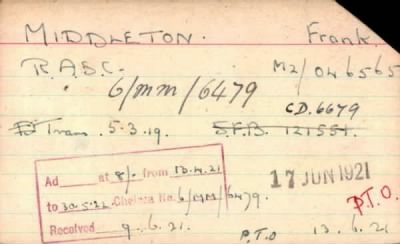 MIDDLETON. Frank.
R.A.S.C. M2/046565
6/MM/6479
CD.6679
Trans. 5.3.19. S.F.B. 121551.
Ad at 8/- from 13.4.21
to 30.5.22. Chelsea No. 6/MM/6479.
Received 9.6.21.
17 JUN 1921
P.T.O.
P.T.O 13.6.21